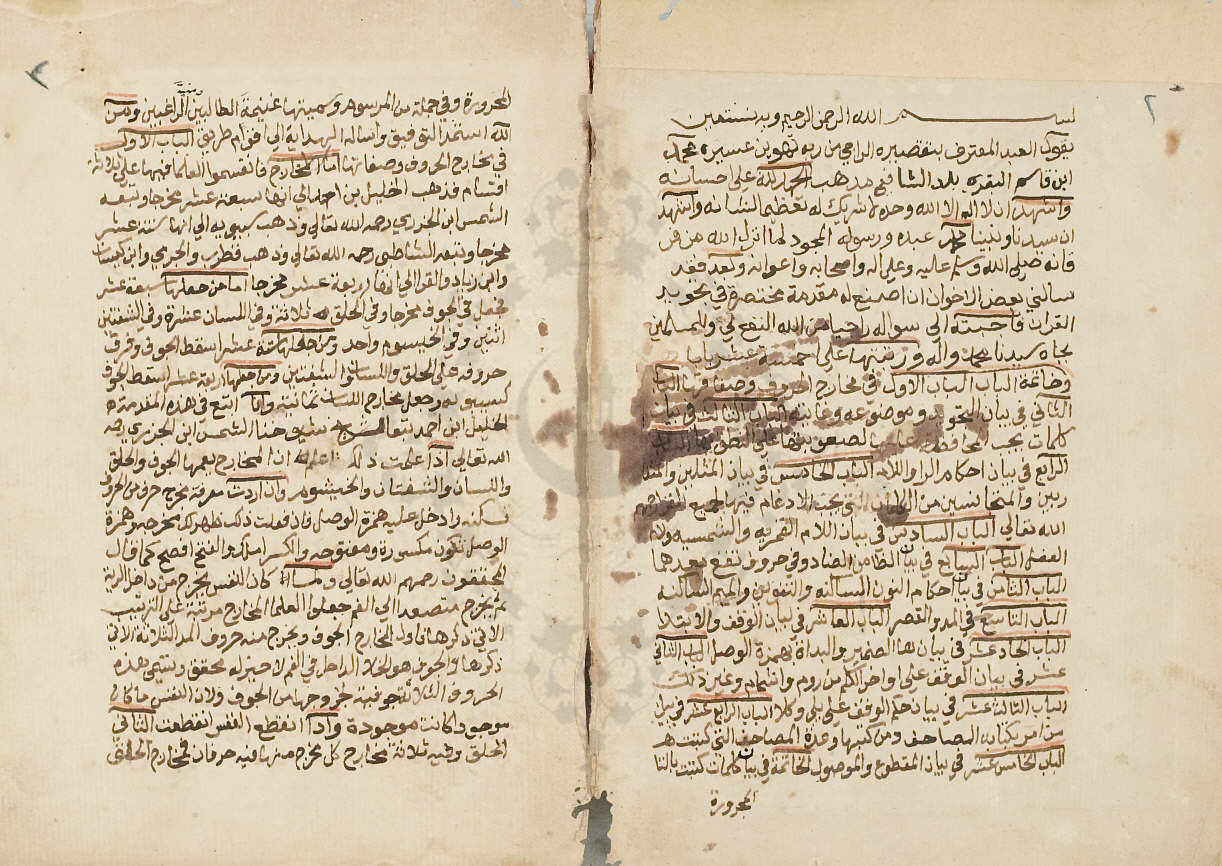 بسم الله الرحمن الرحيم وبه نستعين
يقول العبد المعترف بتقصيره الراجي من ربه تهوين عسيره محمد
ابن قاسم البقري بلد الشافعي مذهب الحمد لله على احسانه
واشهد ان لا اله الا الله وحده لا شريك له تعظيما لشانه واشهد
ان سيدنا ونبينا محمد عبده ورسوله المجود لما انزل الله من فر
قانه صلى الله وسلم عليه وعلى اله واصحابه واعوانه وبعد فقد
سالني بعض الاخوان ان اصنع له مقدمة مختصرة في تجويد
القران فاجبته الى سواله راجيا من الله النفع لي وللمسلمين
بجاه سيدنا محمد واله ورتبتها على خمسة عشر بابا
وخاتمة الباب الباب الاول في مخارج الحروف وصفاتها الباب
الثاني في بيان التجويد وموضوعه وغايته الباب الثالث في بيان
كلمات يجب المحافظة عليها لصعوبتها على النطق بها الباب
الرابع في بيان احكام الرا واللام الباب الخامس في بيان المثلين والمتقا
ربين والمتجانسين من الكلمات التي يجب الادغام فيها لجميع القراء رحمهم
الله تعالى الباب السادس في بيان اللام القمرية والشمسية ولام
الفعل الباب السابع في بيان الظا من الضاد وفي حروف تقع بعدهما
الباب الثامن في بيان احكام النون الساكنه والتنوين والميم الساكنة
الباب التاسع في المد والقصر الباب العاشر في بيان الوقف والابتدا
الباب الحاد عشر في بيان هاا الضمير والبداة بهمزة الوصل الباب الثاني
عشر في بيان الوقف على اواخر الكلم من روم واشمام وغير ذلك
الباب الثالث عشر في بيان حكم الوقف على بلى وكلا الباب الرابع عشر في بيان
من امر بكتابة المصاحف ومن كتبها وعدة المصاحف التي كتبت
الباب الخامس عشر في بيان المقطوع والموصول الخاتمة في بيان كلمات كتبت بالتا
المجرورة
المجرورة وفي جملة من المرسوم وسميتها غنيمة الطالبين ومنية الراغبين ومن
الله استمد التوفيق واساله الهداية الى اقوام طريق الباب الاول
في مخارج الحروف وصفاتها اما المخارج فانقسموا العلما فيها على ثلاثة
اقسام فذهب الخليل بن احمد الى انها سبعة عشر مخرجا وتبعه
الشمس ابن الجزري رحمه الله تعالى وذهب سيبويه الى انها ستة عشر
مخرجا وتبعه الشاطبي رحمه الله تعالى وذهب قطرب والجرمي وابن كيسان
وابن زياد والفرا الى انها اربعة عشر مخرجا اما من جعلها سبعة عشر
فجعل في الجوف مخرجا وفي الحلق ثلاثة وفي اللسان عشرة وفي الشفتين
اثنين وفي الخيشوم واحد ومن جعلها ستة عشر اسقط الجوف وفرق
حروفه على الحلق واللسان والشفتين ومن جعلها اربعة عشر اسقط الجوف
كسيبويه وجعل مخارج اللسان ثمانية وانا اتبع في هذه المقدمة
الخليل ابن احمد تبعا لشيخ شيوخنا الشمس ابن الجزري رحمه
الله تعالى اذا علمت ذلك اعلم ان المخارج يعمها الجوف والحلق
واللسان والشفتان والخيشوم وان اردت معرفة مخرج حرف من الحروف
فسكنه وادخل عليه همزة الوصل فاذا فعلت ذلك ظهر لك مخرجه وهمزة
الوصل تكون مكسورة ومفتوحه والكسر املك والفتح افصح كما قال
المحققون رحمهم الله تعالى ولما كان النفس يخرج من داخل الرية
ثم يخرج متصعدا الى الفم جعلوا العلما المخارج مرتبة على الترتيب
الاتي ذكرها فاول المخارج الجوف ويخرج منه حروف المد الثلاثة الاتي
ذكرها والجوف هو الخلا الداخل في الفم لا حيز له محقق وتنتهي هذه
الحروف الثلاثة الجوفية خروجها من الجوف ولان النفس ما كان
موجودا كانت موجودة واذا انقطع النفس انقطعت الثاني
الحلق وفيه ثلاثة مخارج كل مخرج منها فيه حرفان فمخارج الحلق